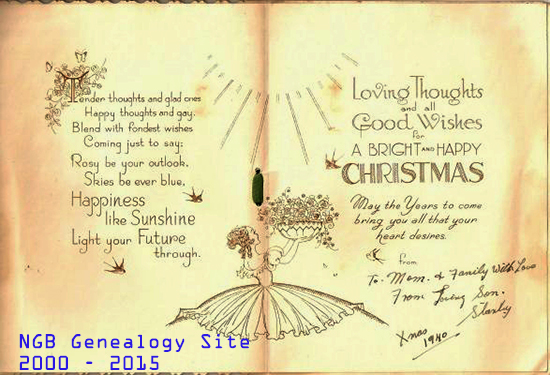 Tender thoughts and glad ones
Happy thoughts and gay.
Blend with fondest wishes
Coming just to say:
Rosy be your outlook,
Skies be ever blue,
Happiness
like Sunshine
Light your Future
through.
Loving Thoughts
and all
Good Wishes
for
A BRIGHT AND HAPPY
CHRISTMAS
May the Years to come
bring you all that your
heart desires.
from
To. Mom. & Family With Love
From Loving Son.
Xmas
1940
NGB Genealogy Site
2000 - 2015